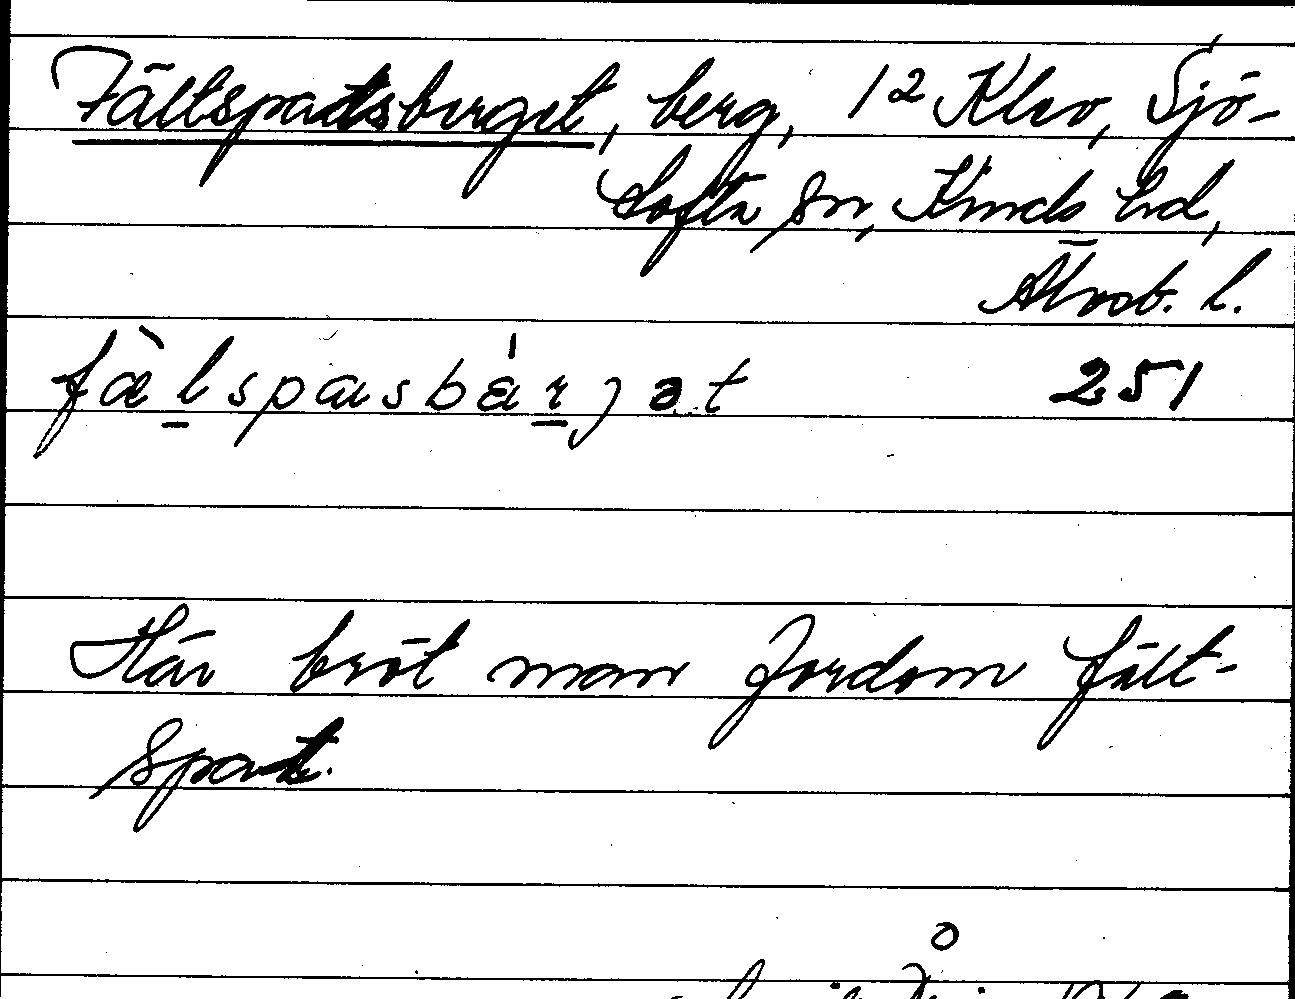 Fältspatsberget, berg, 1² Klev, Sjö-
tofta sn, Kinds hd,
Älvsb. l.
fæ̀l̠spasbár̠jət 251
Här bröt man fordom fält-
spat.